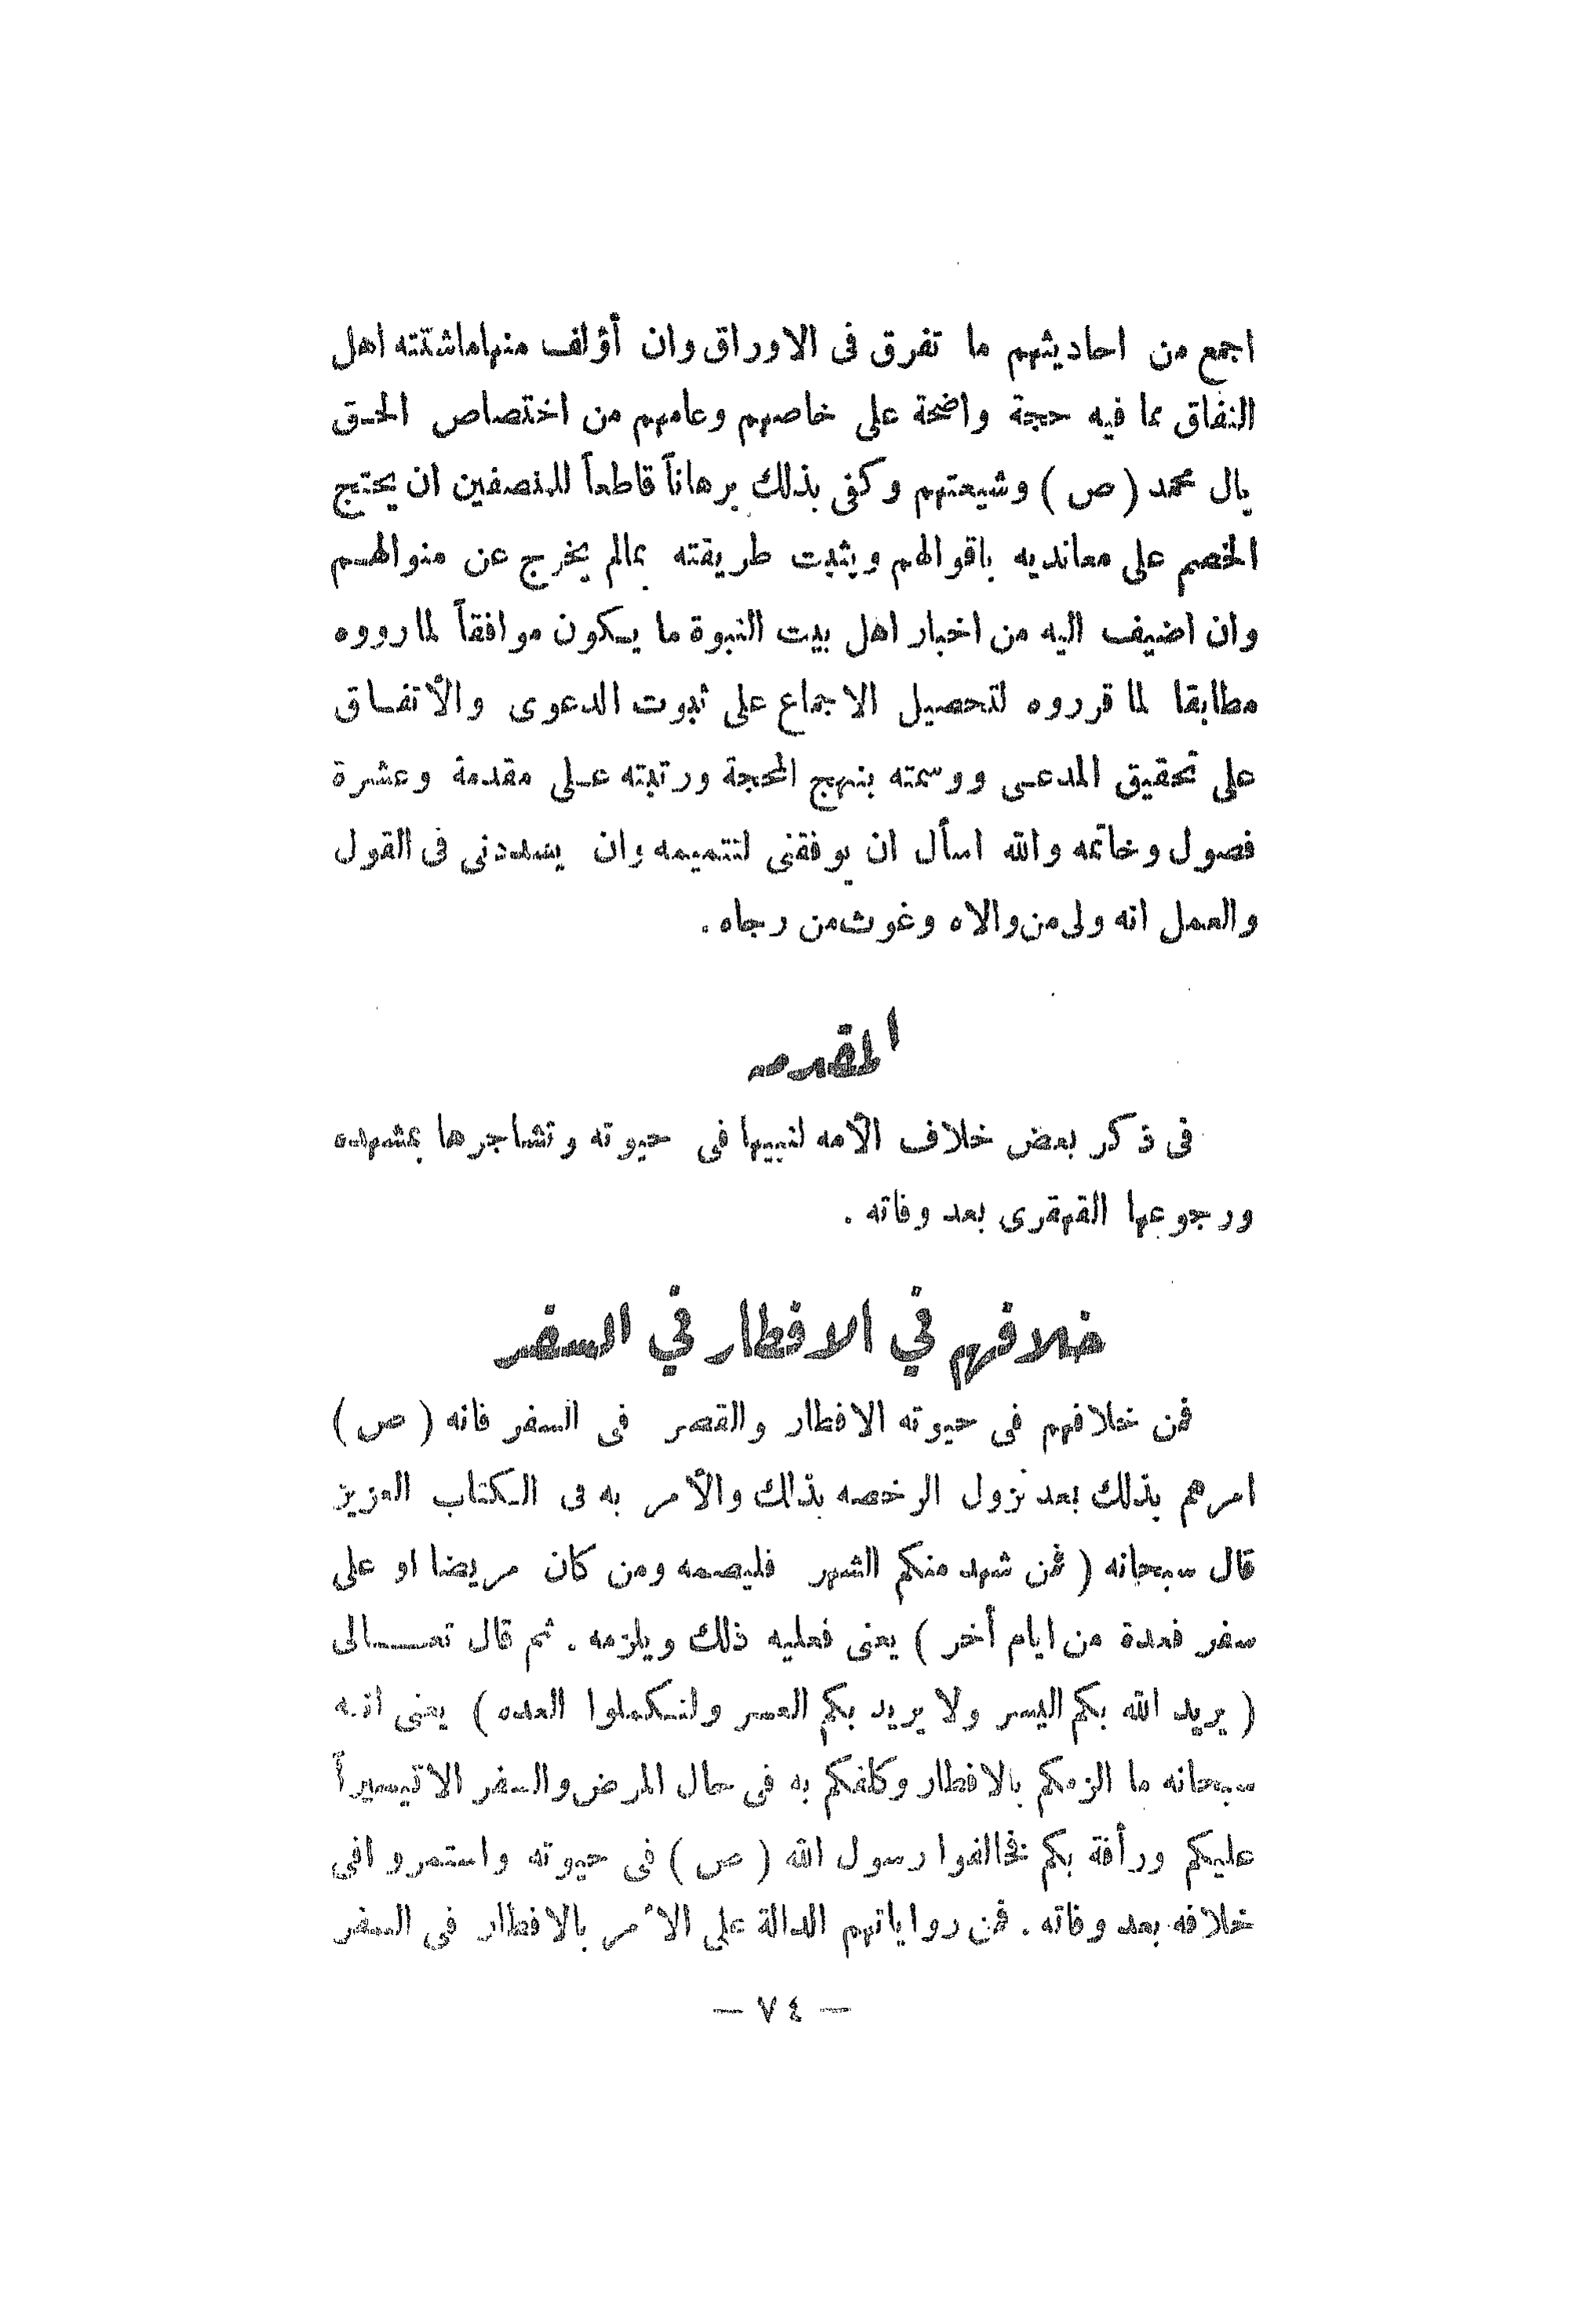 اجمع من احاديثهم ما تفرق فى الاوراق وان أؤلف منها ماشتته اهل
النفاق بما فيه حجة واضحة على خاصهم وعامهم من اختصاص الحق
بال محمد ( ص ) وشيعتهم وكفى بذلك برهاناً قاطعاً للمنصفين ان يحتج
الخصم على معانديه باقوالهم ويثبت طريقته بمالم يخرج عن منوالهم
وان اضيف اليه من اخبار اهل بيت النبوة ما يكون موافقاً لما رووه
مطابقا لما قرروه لتحصيل الاجماع على ثبوت الدعوى والأتفاق
على تحقيق المدعى ووسمته بنهج المحجة ورتبته على مقدمة وعشرة
فصول وخاتمه والله اسأل ان يوفقنى لتتميمه وان يسددنى فى القول
والعمل انه ولى من والاه وغوث من رجاه .
المقدمه
فى ذكر بعض خلاف الأمه لنبيها فى حيوته وتشاجرها بمشهده
ورجوعها القهقرى بعد وفاته .
خلافهم في الافطار في السفر
فمن خلافهم فى حيوته الافطار والقصر فى السفر فانه ( ص )
امرهم بذلك بعد نزول الرخصه بذلك والأمر به فى الكتاب العزيز
قال سبحانه ( فمن شهد منكم الشهر فليصمه ومن كان مريضا او على
سفر فعدة من ايام أخر ) يعنى فعليه ذلك ويلزمه . ثم قال تعالى
( يريد الله بكم اليسر ولا يريد بكم العسر ولتكملوا العده ) يعنى انه
سبحانه ما الزمكم بالافطار وكلفكم به فى حال المرض والسفر الا تيسيراً
عليكم ورأفة بكم فخالفوا رسول الله ( ص ) فى حيوته واستمروا فى
خلافه بعد وفاته . فمن رواياتهم الدالة على الأمر بالافطار فى السفر
— ٧٤ —